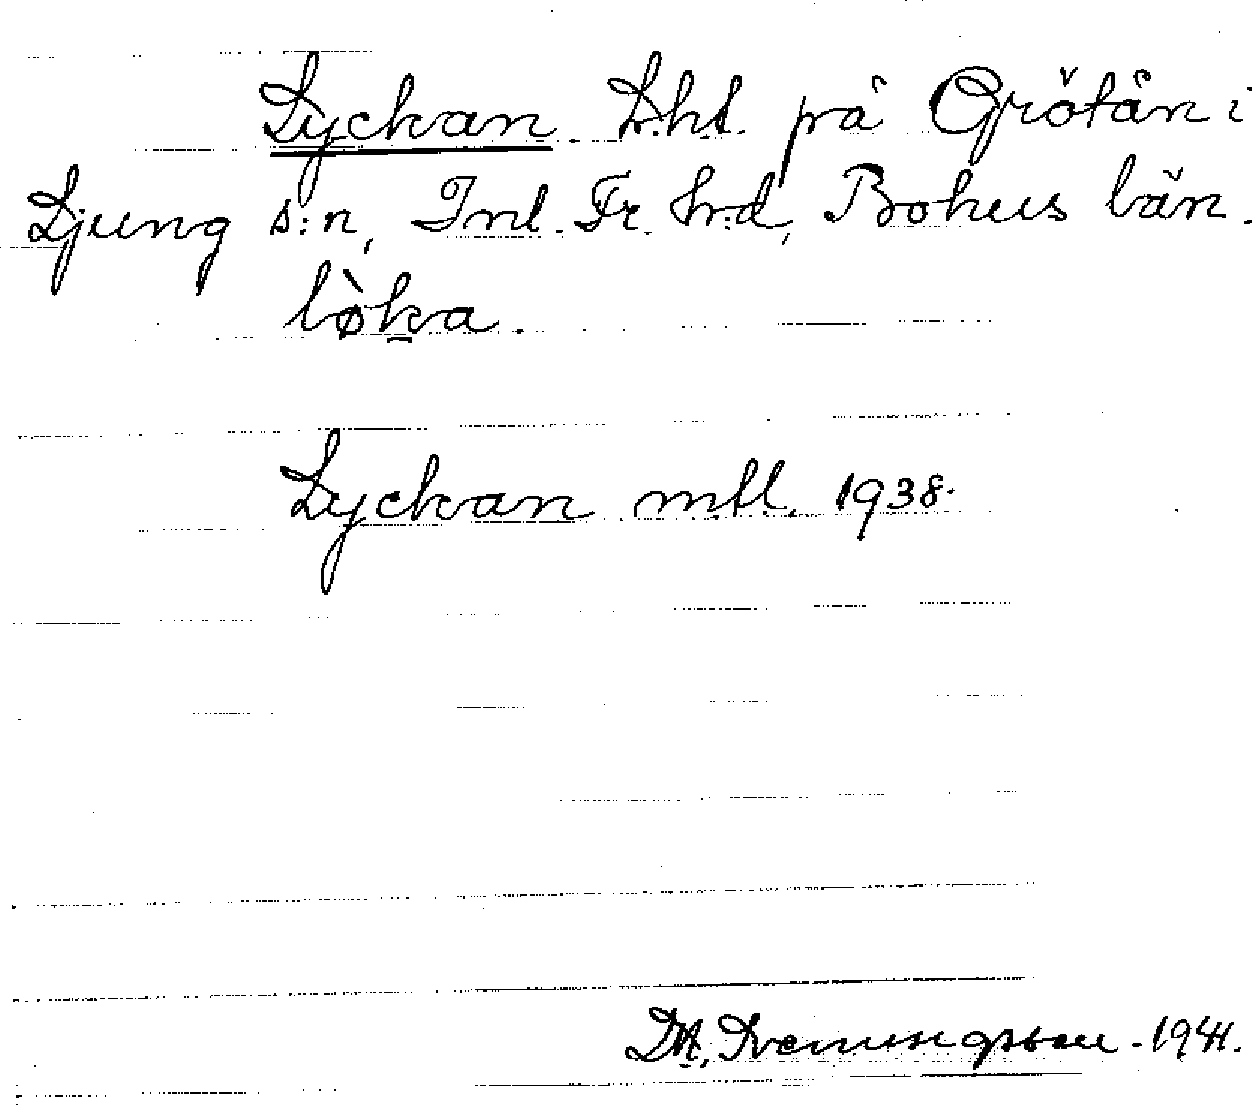 Lyckan Lht. på Grötån i
Ljung s:n, Inl. Fr. hrd, Bohus län.
lø̀ka.
Lyckan mtl. 1938.
1941.